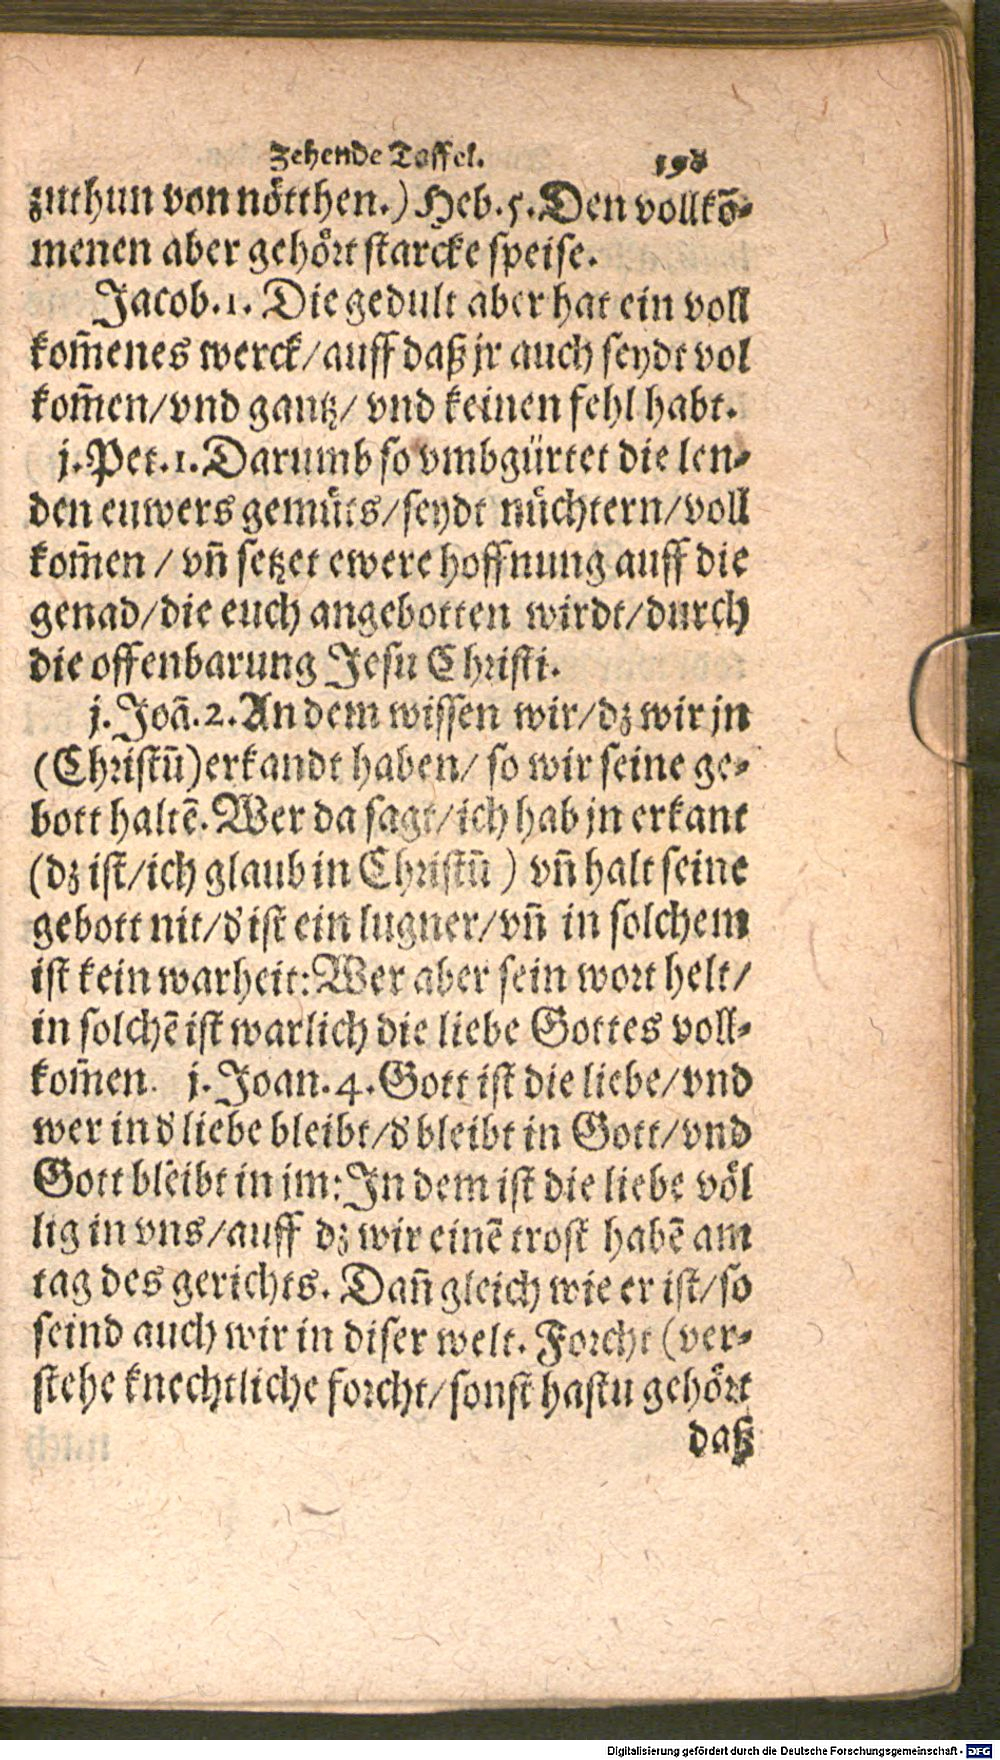 Zehende Taffel. 198
zuthun von nötthen.) Heb. 5. Den vollkō-
menen aber gehört starcke speise.
Jacob. 1. Die gedult aber hat ein voll
kom̃enes werck/auff daß jr auch seydt vol
kom̃en/vnd gantz/ vnd keinen fehl habt.
j. Pet. 1. Darumb so vmbgürtet die len-
den euwers gemüts/seydt nüchtern/voll
kom̃en / vñ setzet ewere hoffnung auff die
genad/die euch angebotten wirdt/durch
die offenbarung Jesu Christi.
j. Joā. 2. An dem wissen wir/dz wir jn
(Christū) erkandt haben/ so wir seine ge-
bott haltē. Wer da sagt/ich hab jn erkant
(dz ist/ich glaub in Christū ) vñ halt seine
gebott nit/d' ist ein lugner/vñ in solchem
ist kein warheit: Wer aber sein wort helt/
in solchē ist warlich die liebe Gottes voll-
kom̃en. j. Joan. 4. Gott ist die liebe/vnd
wer in d' liebe bleibt/d' bleibt in Gott/vnd
Gott bleibt in jm: In dem ist die liebe völ
lig in vns/auff dz wir einē trost habē am
tag des gerichts. Dañ gleich wie er ist/so
seind auch wir in diser welt. Forcht (ver-
stehe knechtliche forcht/sonst hastu gehört
daß
Digitalisierung gefördert durch die Deutsche Forschungsgemeinschaft - DFG